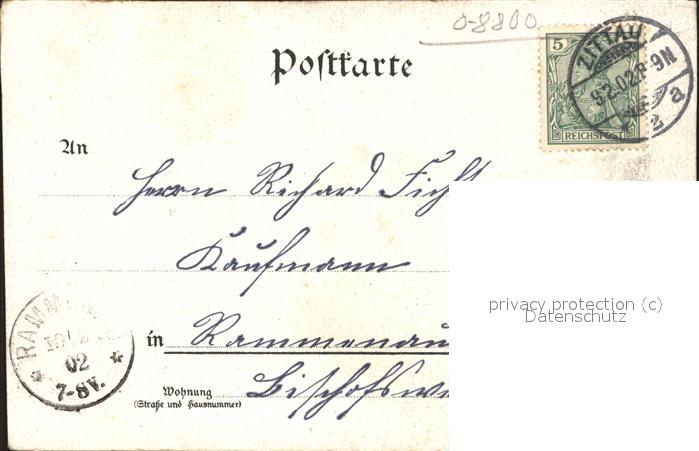 0-8800
Postkarte
5
REICHSPOST
ZITTAU
9.2.02.8-9N
a
2
An
Herrn Richard
Kaufmann
in Rammenau
Wohnung
(Straße und Hausnummer)
RAMM
02
7-8V.
privacy protection (c)
Datenschutz